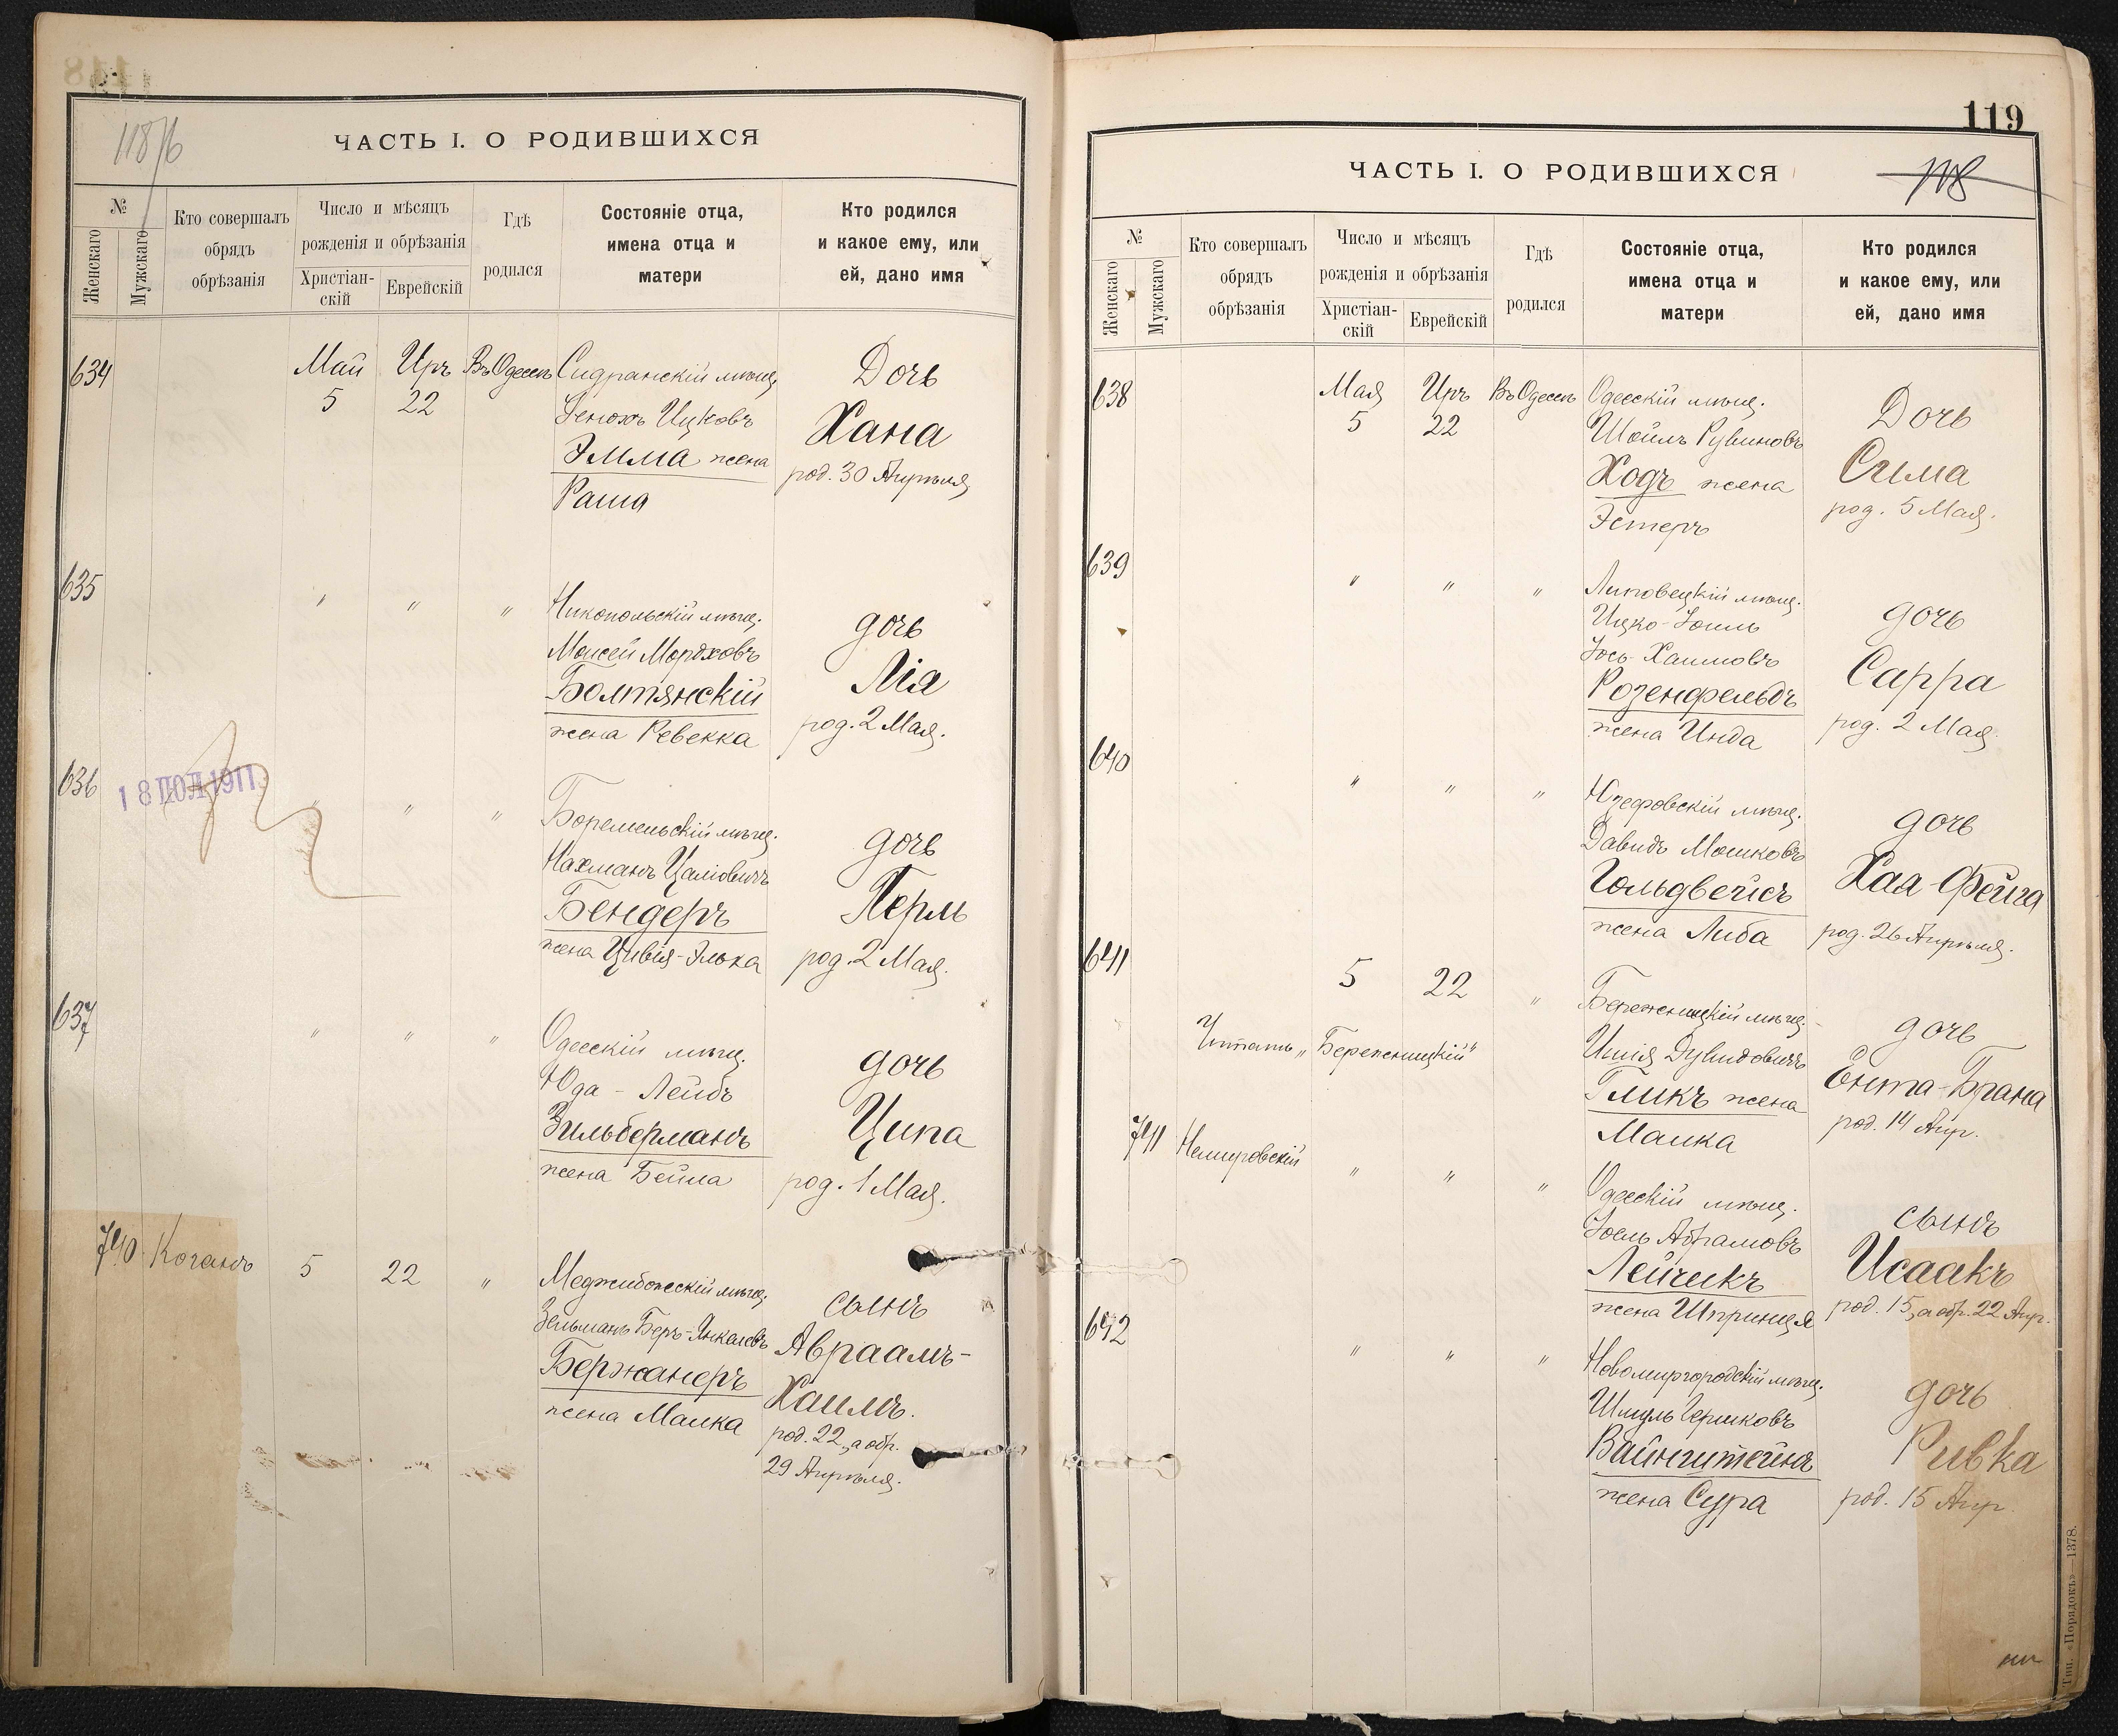 118 об
ЧАСТЬ I. О РОДИВШИХСЯ
№
Женскаго
Мужскаго
Кто совершалъ
обрядъ
обрѣзанія
Число и мѣсяцъ
рожденія и обрѣзанія
Христіан-
скій
Еврейскій
Гдѣ
родился
Состояніе отца,
имена отца и
матери
Кто родился
и какое ему, или
ей, дано имя
634
Май
5
Иръ
22
Въ Одессѣ
мѣщ.
Генохъ Ицковъ
Эмма жена
Раша
Дочь
Хана
род. 30 Апрѣля
635
"
"
"
Никопольскій мѣщ.
Моисей Мордховъ
Болтянскій
жена Ревекка
дочь
Лія
род. 2 Мая.
636
18 ІЮЛ 1911
"
"
"
Боремельскій мѣщ.
Нахманъ Цаліовичъ
Бендеръ
жена Цивія-Элька
дочь
Перль
род. 2 Мая.
637
"
"
"
Одесскій мѣщ.
Юда - Лейбъ
Зильберманъ
жена Бейла
дочь
Ципа
род. 1 Мая.
740
Коганъ
5
22
"
Меджибожескій мѣщ.
Зельманъ Беръ-Янкелевъ
Бержанеръ
жена Малка
сынъ
Авраамъ-
Хаимъ.
род. 22, а обр.
29 Апрѣля.
119
118
ЧАСТЬ I. О РОДИВШИХСЯ
№
Женскаго
Мужскаго
Кто совершалъ
обрядъ
обрѣзанія
Число и мѣсяцъ
рожденія и обрѣзанія
Христіан-
скій
Еврейскій
Гдѣ
родился
Состояніе отца,
имена отца и
матери
Кто родился
и какое ему, или
ей, дано имя
638
Мая
5
Иръ
22
Въ Одессѣ
Одесскій мѣщ.
Шойлъ Рувиновъ
Ходъ жена
Эстеръ
Дочь
Сима
род. 5 Мая.
639
"
"
"
Липовецкій мѣщ.
Ицко-Іоиль
Іось Хаимовъ
Розенфельдъ
жена Инда
дочь
Сарра
род. 2 Мая
640
"
"
"
Юзефовскій мѣщ.
Давидъ Мошковъ
Гольдвейсъ
жена Либа
дочь
Хая-Фейга
род. 26 Апрѣля.
641
5
22
"
Бережницкій мѣщ.
Читать „Бережницкій“
Гликъ жена
Малка
дочь
Ента-Брана
род. 14 Апр.
741
Немировскій
"
"
"
Одесскій мѣщ.
Іоель Абрамовъ
Лейчикъ
жена Шпринця
сынъ
Исаакъ
род. 15, а обр. 22 Апр.
642
"
"
"
Новомиргородскій мѣщ.
Шмуль Гершковъ
Вайнштейнъ
жена Сура
дочь
Ривка
род. 15 Апр.
Тип. «Порядокъ»—1378.